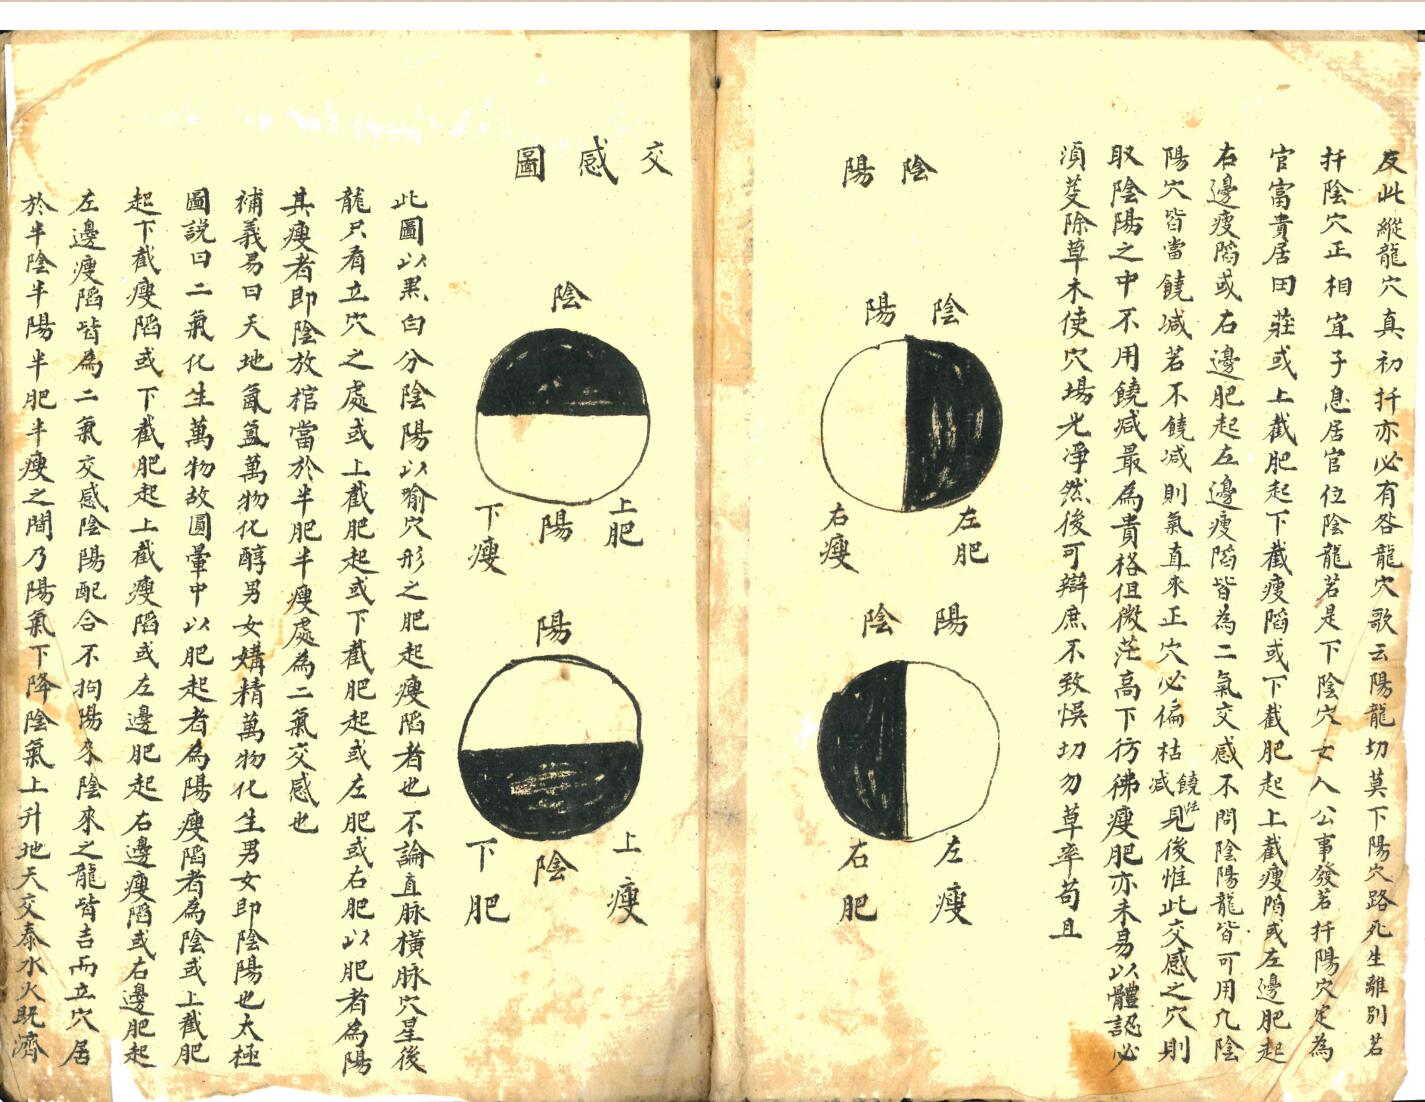 反此縱龍穴真初扦亦必有咎龍穴歌云陽龍切莫下陽穴路死生離別若
扦陰穴正相宜子息居官位陰龍若是下陰穴女人公事發若扦陽穴定為
官富貴居田莊或上截肥起下截瘦陷或下截肥起上截瘦陷或左邊肥起
右邊瘦陷或右邊肥起左邊瘦陷皆為二氣交感不問陰陽龍皆可用凡陰
陽穴皆當饒減若不饒減則氣直來正穴必偏枯饒減法見後惟此交感之穴則
取陰陽之中不用饒減最為貴格但微茫高下彷彿瘦肥亦未易以體認必
須芟除草木使穴場光淨然後可辯庶不致悞切勿草率苟且
陰陽
陰
陽
左肥
右瘦
陽
陰
左瘦
右肥
交感圖
陰
上肥
陽
下瘦
陽
上瘦
陰
下肥
此圖以黑白分陰陽以喻穴形之肥起瘦陷者也不論直脉橫脉穴星後
龍只看立穴之處或上截肥起或下截肥起或左肥或右肥以肥者為陽
其瘦者即陰放棺當於半肥半瘦處為二氣交感也
補義易曰天地氤氳萬物化醇男女媾精萬物化生男女即陰陽也太極
圖說曰二氣化生萬物故圓暈中以肥起者為陽瘦陷者為陰或上截肥
起下截瘦陷或下截肥起上截瘦陷或左邊肥起右邊瘦陷或右邊肥起
左邊瘦陷皆為二氣交感陰陽配合不拘陽來陰來之龍皆吉而立穴居
於半陰半陽半肥半瘦之間乃陽氣下降陰氣上升地天交泰水火既濟